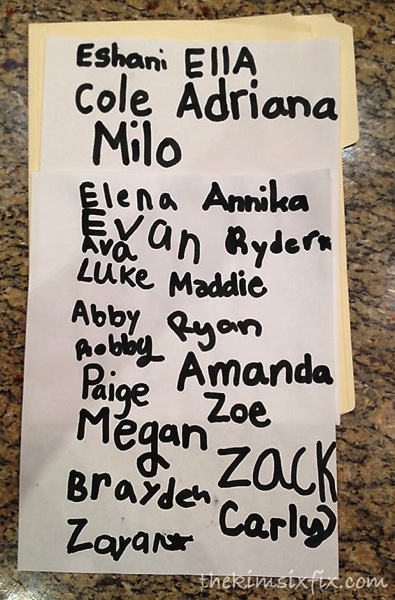 Eshani Ella
Cole Adriana
Milo
Elena Annika
Evan
Ava Ryder*
Luke Maddie
Abby Ryan
Robby
Paige Amanda
Megan Zoe
Zack
Brayden
Carly
Zayan*
thekimsixfix.com